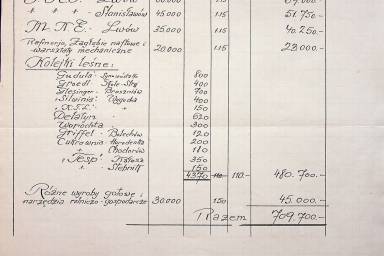 Lwów
" " " Stanisławów 45.000 115 51.750.-
M.K.E. Lwów 35.000 115 40.250.-
Rafinerja, Zagłębie naftowe i
warsztaty mechaniczne 20.000 115 23.000.-
Kolejki leśne:
Gudula 800
Groedl Skole 400
Glesinger Broszniów 700
Silwinia Wygoda 400
150
Delatyn 620
Worochta 300
Griffel Bolechów 120
Cukrownia Horodenka 200
" Chodorów 180
"Tesp" Kałusz 350
" Stebnik 150
4370 110 110.- 480.700.-
Różne wyroby gotowe i
narzędzia rolniczo-gospodarcze 30.000 150 45.000.-
Razem 709.700.-